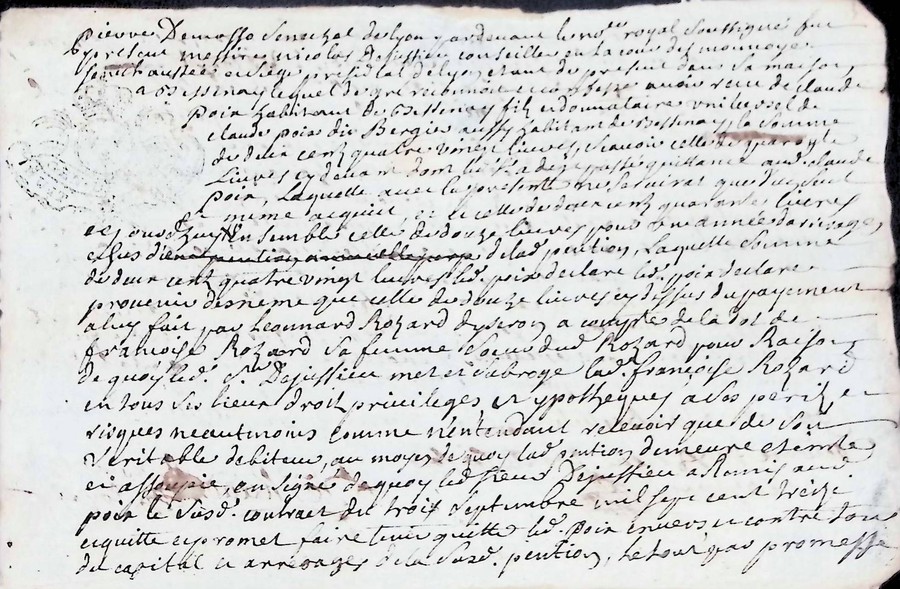 pierre Demasso Senechal de lyon pardevant le no.re royal Soussigné fut
present messire nicolas Dejussieu conseiller en la cour des monnoyes
senechaussée et siege presidial de lyon etant de present dans sa maison
a Bessenay lequel de gré reconnoit et confesse avoir receu de claude
poix habitant de Bessenay fils et donnataire universel de
claude poix dit Bergier aussy habitant de Bessenay la somme
de deux cent quatre vingt livres, scavoir celle de
livres cy devant dont il a deja passé quittance aud. claude
poix, Laquelle avec la presente ne servirat que d'un seul
meme acquit, et icelle de deux cent quarante livres
ce jourdhuy Ensemble celle de douze livres pour une année d'arrerages
de lad. pention, Laquelle Somme
de deux cent quatre vingt livres led. poix declare led. poix declare
provenir de meme que celle de douze livres cy dessus du payement
a luy fait par Leonnard Rozard a compte de la dot de
francoise Rozard sa femme et soeur dud. Rozard pour Raison
de quoy led. Sr. Dejussieu met et subroge lad. françoise Rozard
en tous ses lieux droit privileges et ypotheques a ses perils et
risques neautmoins comme n'entendant recevoir que de son
veritable debiteur, au moyen de quoy lad. pention demeure eteinte
et assoupie, en signe de quoy led. sieur Dejussieu a Remis aud.
poix le susd. contract du trois septembre mil sept cent treize
et quitte et promet faire tenir quitte led. poix envers et contre tous
du capital et arrerages de la susd. pention, le tout par promesse